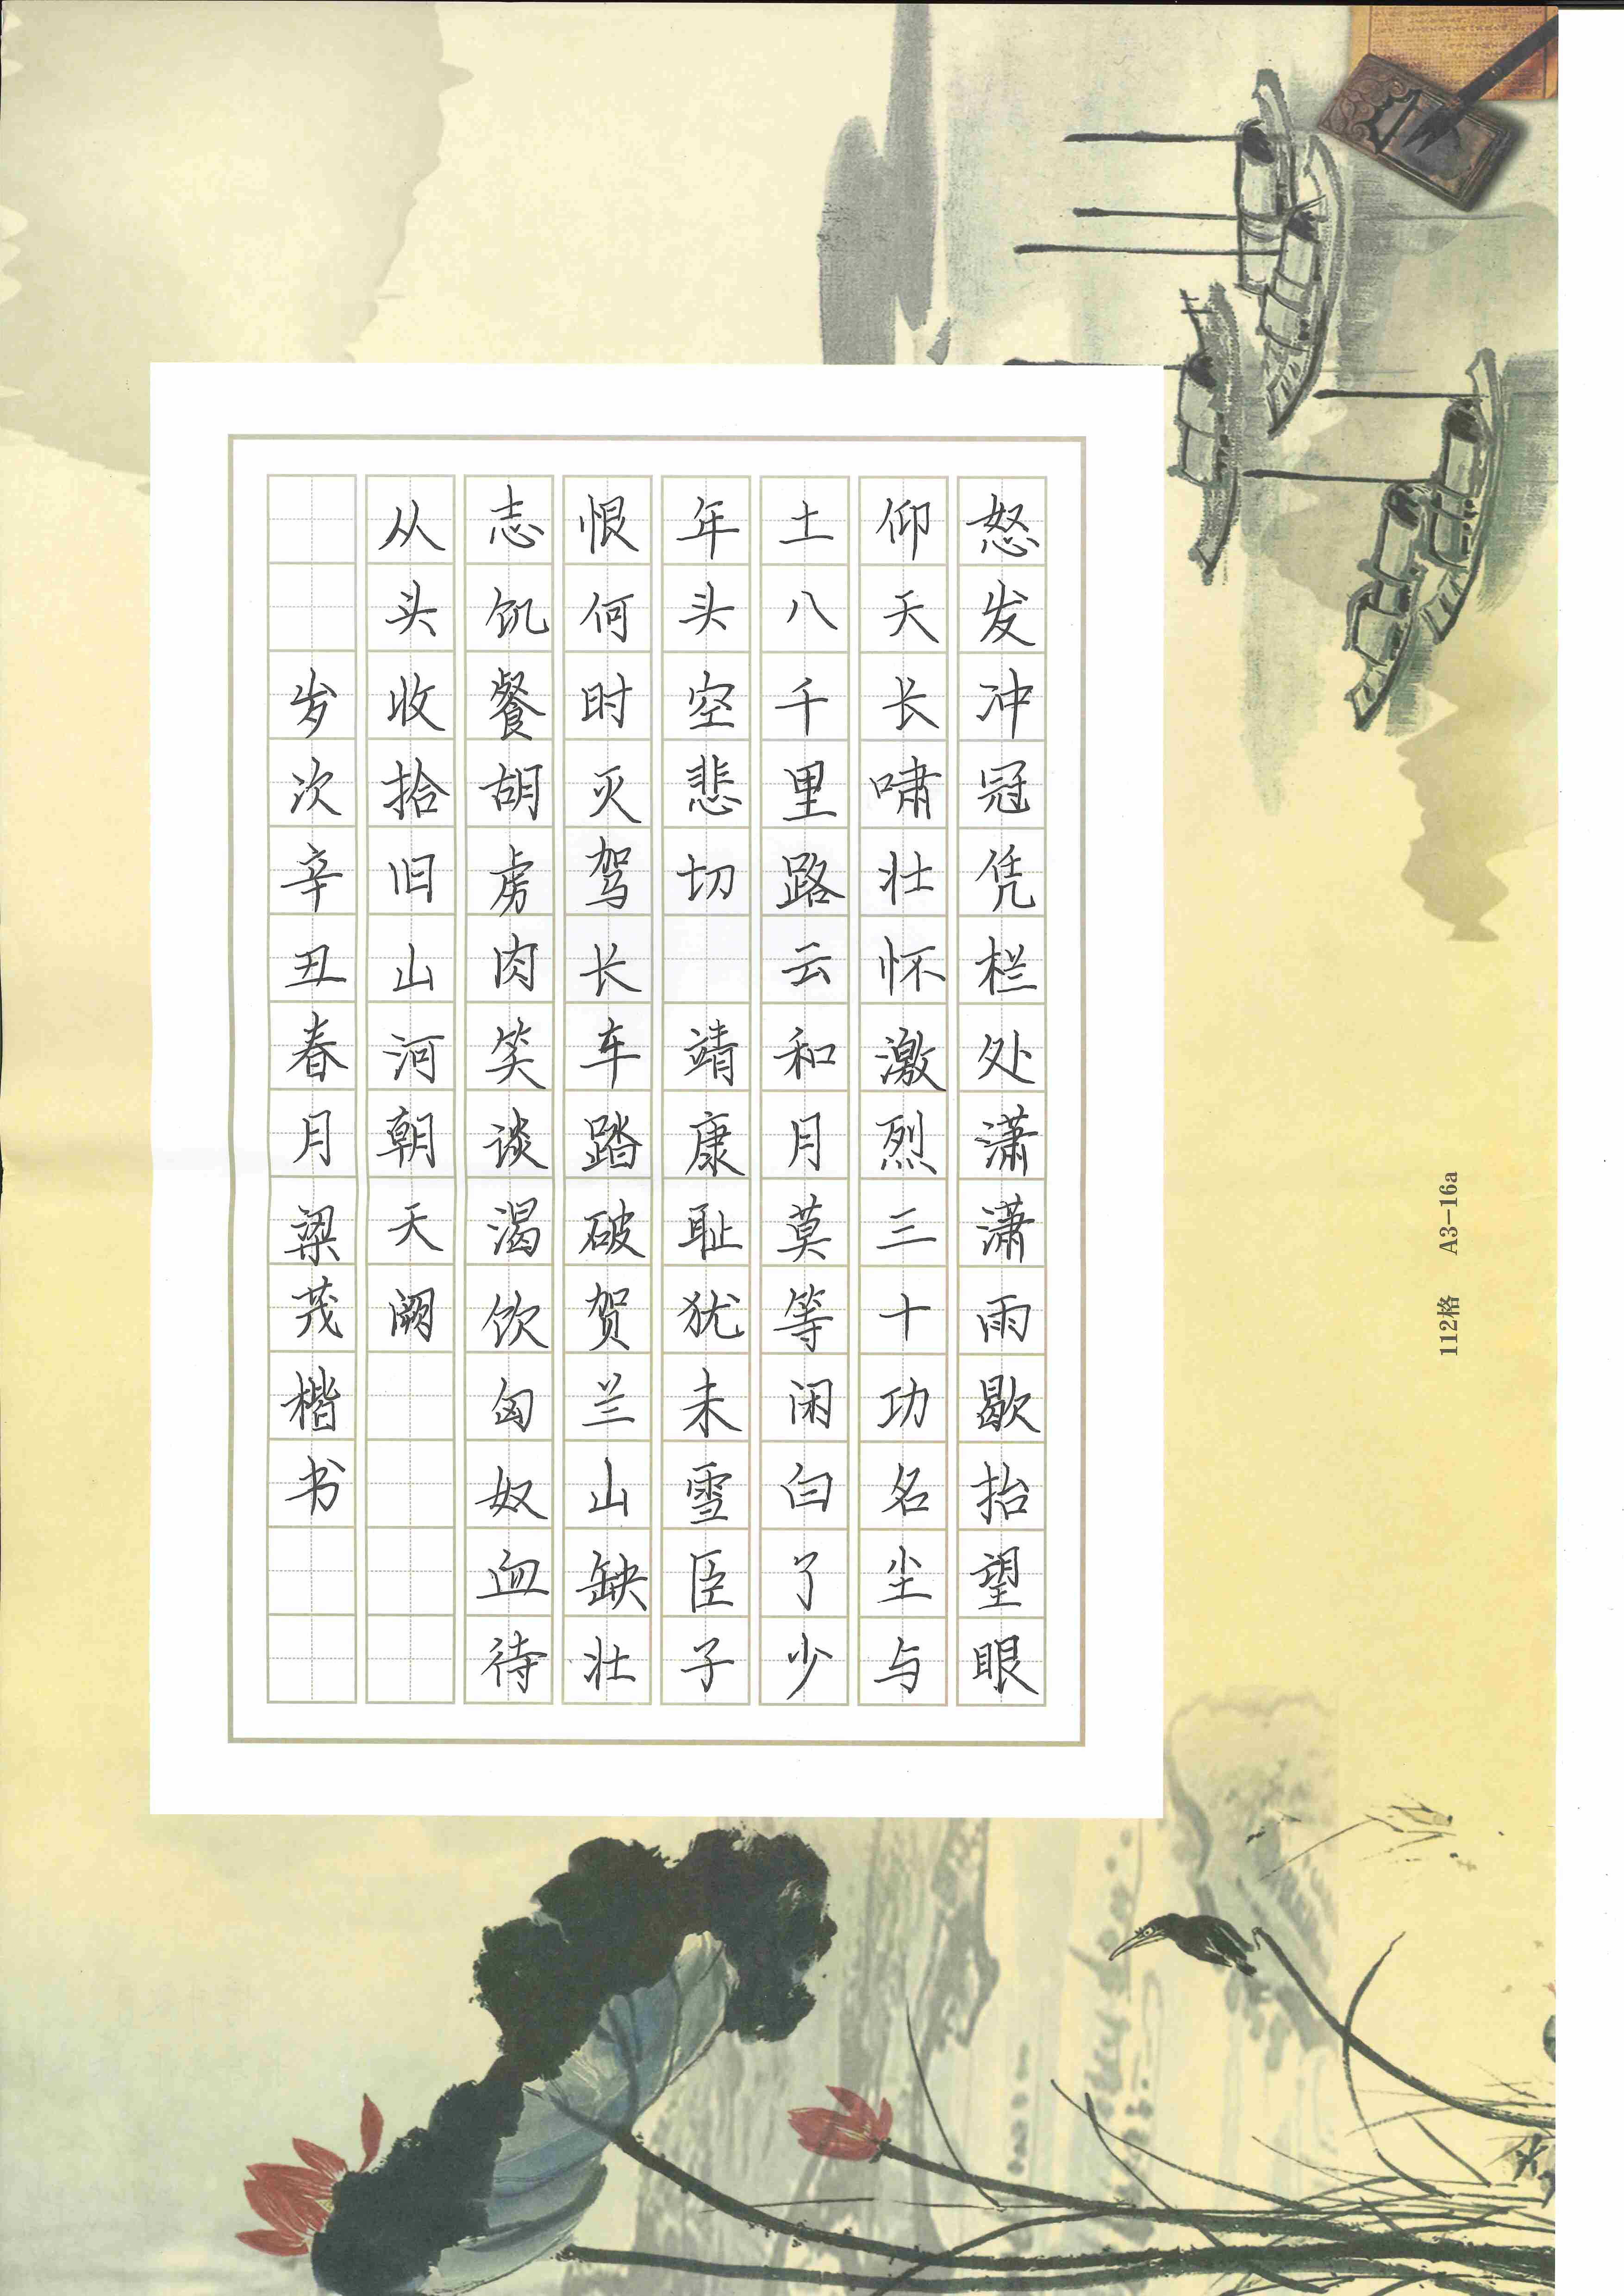 怒发冲冠凭栏处潇潇雨歇抬望眼
仰天长啸壮怀激烈三十功名尘与
土八千里路云和月莫等闲白了少
年头空悲切 靖康耻犹未雪臣子
恨何时灭驾长车踏破贺兰山缺壮
志饥餐胡虏肉笑谈渴饮匈奴血待
从头收拾旧山河朝天阙
岁次辛丑春月梁茂楷书
112格 A3-16a